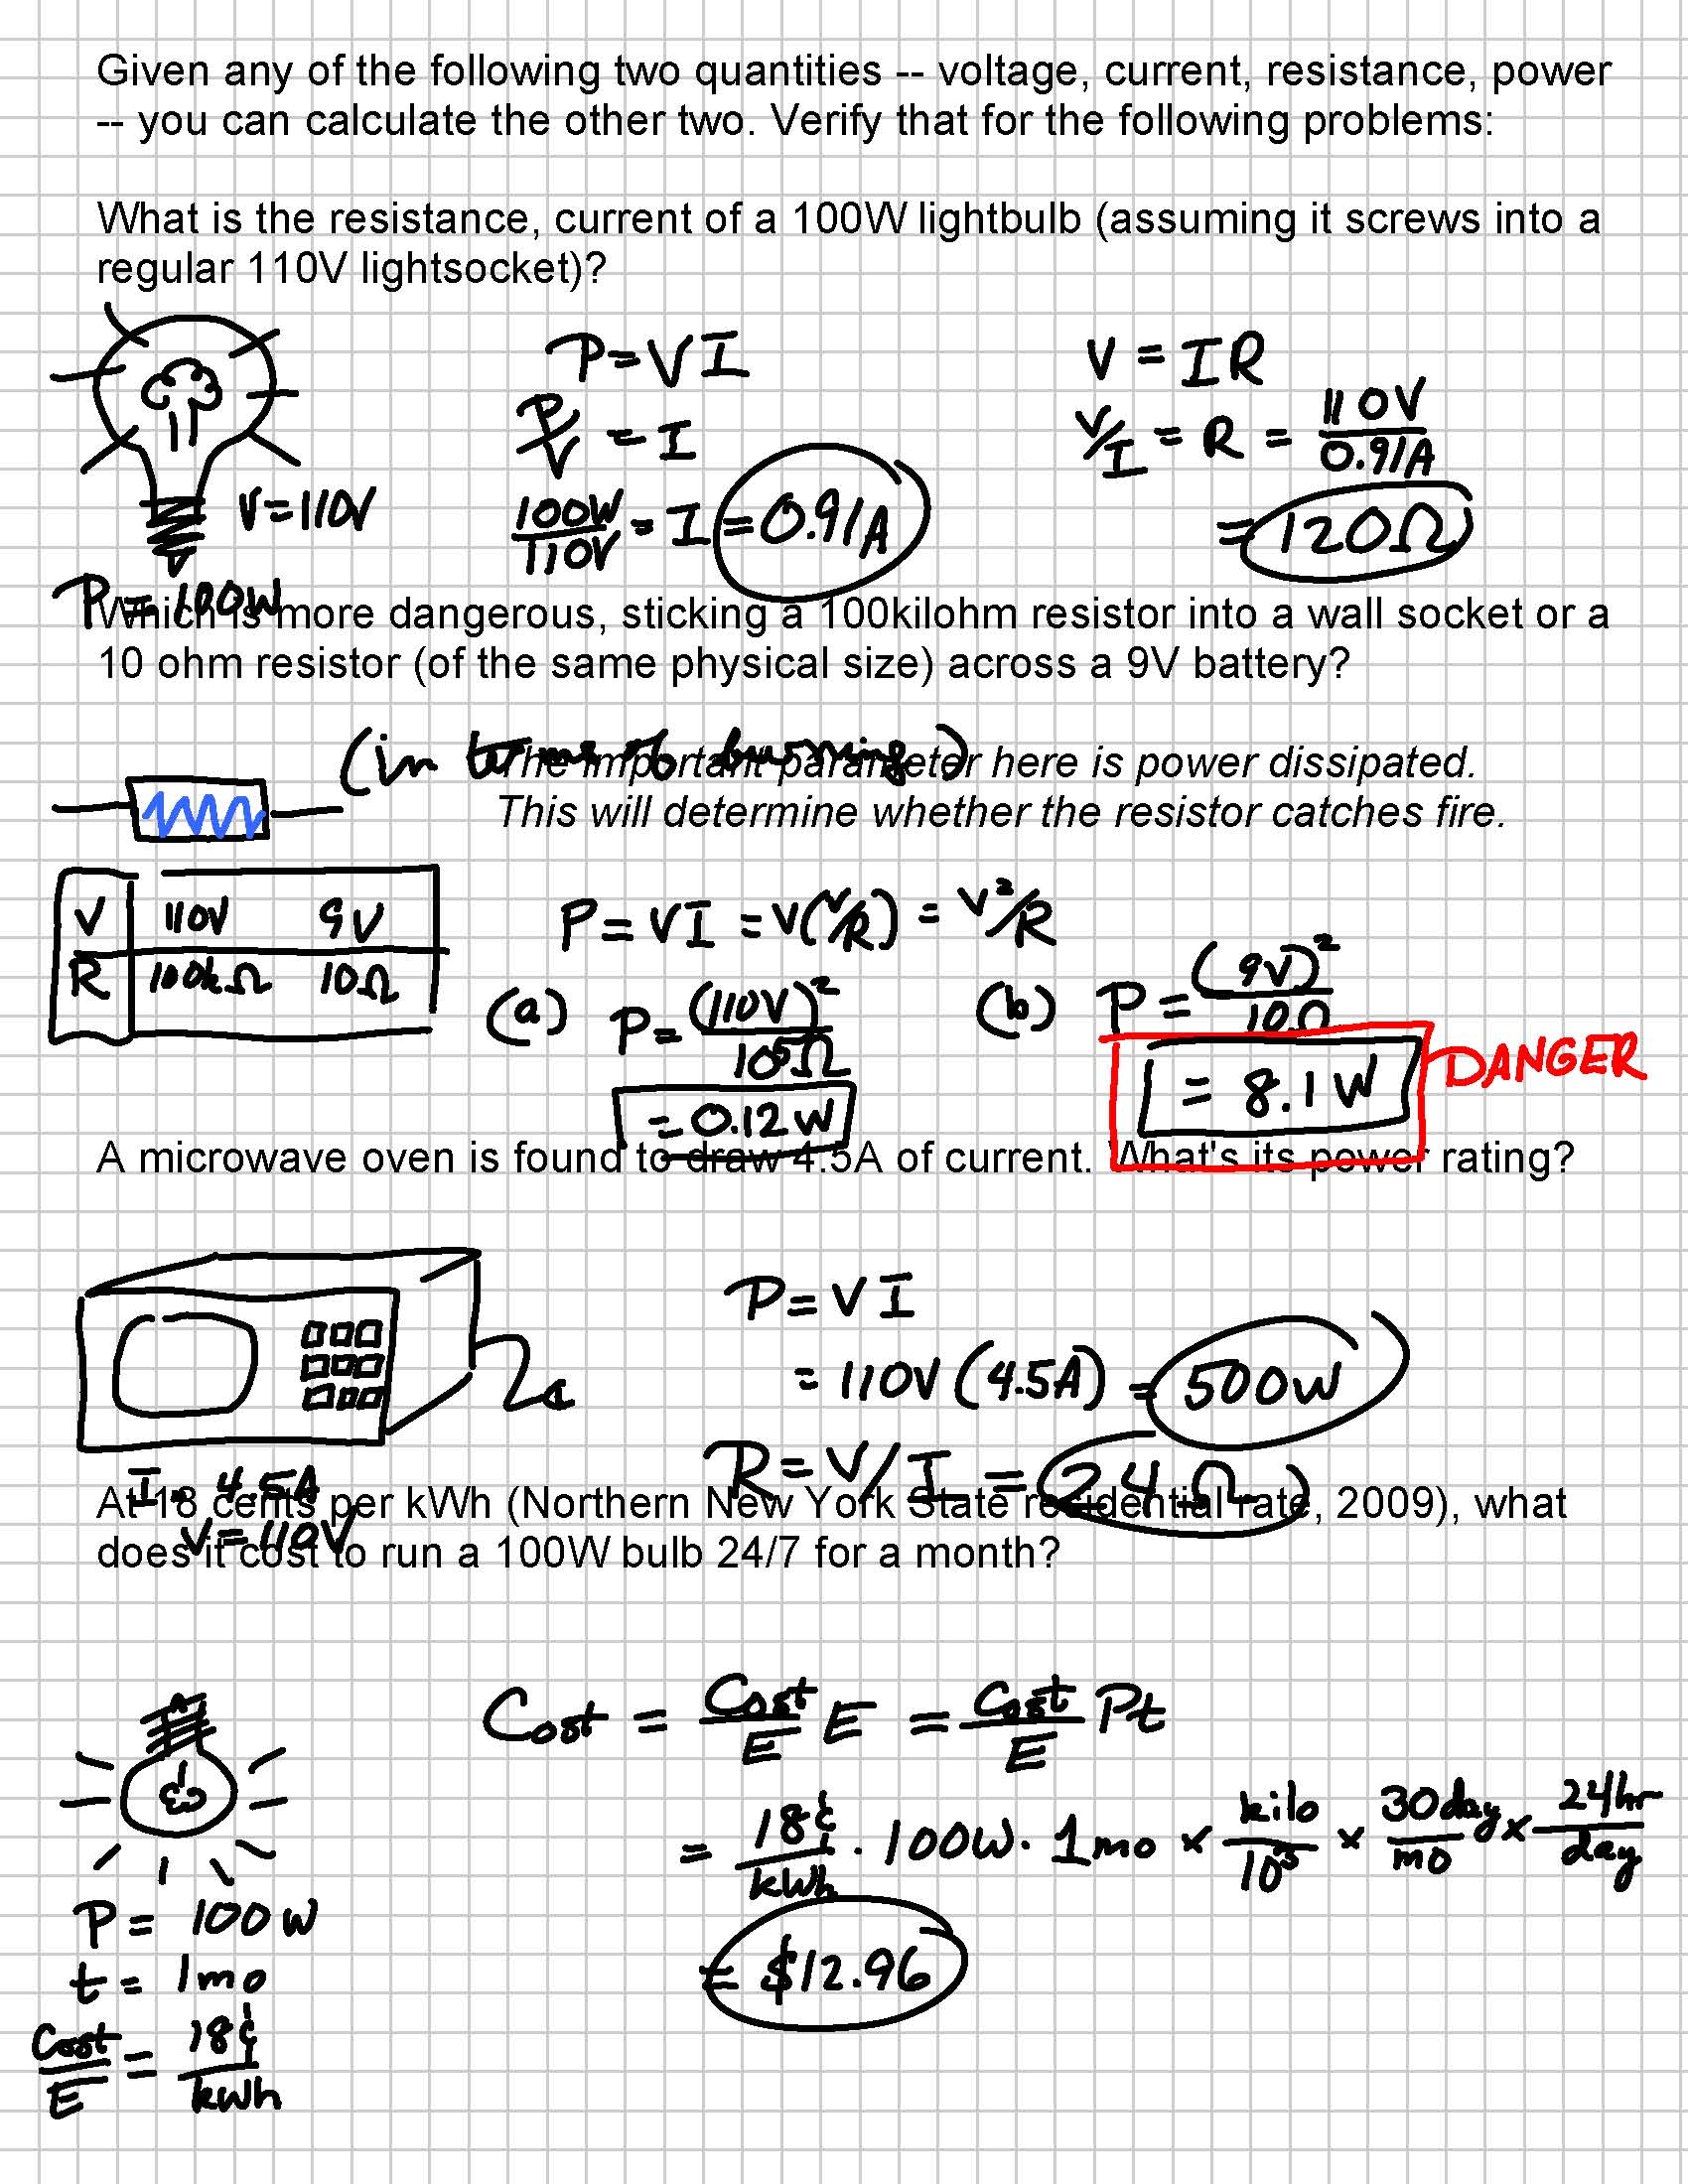 Given any of the following two quantities -- voltage, current, resistance, power
-- you can calculate the other two. Verify that for the following problems:
What is the resistance, current of a 100W lightbulb (assuming it screws into a
regular 110V lightsocket)?
P = VI
V = IR
P/V = I
V/I = R = 110V/0.91A
V = 110V
100W/110V = I = 0.91A
= 120Ω
P = 100W
Which is more dangerous, sticking a 100kilohm resistor into a wall socket or a
10 ohm resistor (of the same physical size) across a 9V battery?
(in terms of burning)
The important parameter here is power dissipated.
This will determine whether the resistor catches fire.
V 110V 9V
R 100kΩ 10Ω
P = VI = V(V/R) = V²/R
(a) P = (110V)²/10⁵Ω
= 0.12W
(b) P = (9V)²/10Ω
= 8.1W
DANGER
A microwave oven is found to draw 4.5A of current. What's its power rating?
P = VI
= 110V (4.5A) = 500W
R = V/I = 24Ω
I = 4.5A
V = 110V
At 18 cents per kWh (Northern New York State residential rate, 2009), what
does it cost to run a 100W bulb 24/7 for a month?
Cost = Cost/E E = Cost/E Pt
= 18¢/kWh · 100W · 1mo × kilo/10³ × 30day/mo × 24hr/day
= $12.96
P = 100W
t = 1mo
Cost/E = 18¢/kWh